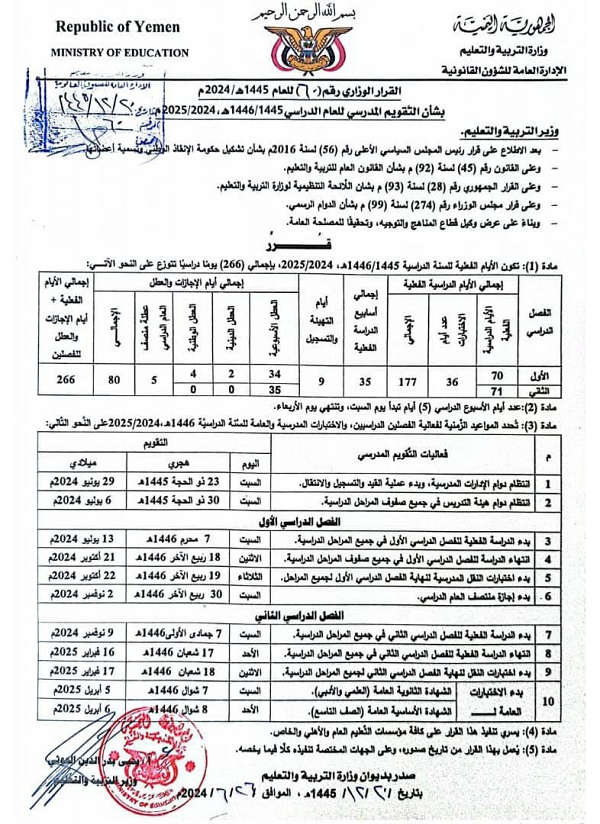 بسم الله الرحمن الرحيم
Republic of Yemen
MINISTRY OF EDUCATION
الجمهورية اليمنية
وزارة التربية والتعليم
الإدارة العامة للشؤون القانونية
القرار الوزاري رقم (٦٠) للعام 1445هـ/2024م
بشأن التقويم المدرسي للعام الدراسي 1446/1445هـ، 2025/2024م
وزير التربية والتعليم.
- بعد الاطلاع على قرار رئيس المجلس السياسي الأعلى رقم (56) لسنة 2016م بشأن تشكيل حكومة الإنقاذ الوطني وتسمية أعضائها
- وعلى القانون رقم (45) لسنة (92) م بشأن القانون العام للتربية والتعليم.
- وعلى القرار الجمهوري رقم (28) لسنة (93) م بشأن اللائحة التنظيمية لوزارة التربية والتعليم.
- وعلى قرار مجلس الوزراء رقم (274) لسنة (99) م بشأن الدوام الرسمي.
- وبناءً على عرض وكيل قطاع المناهج والتوجيه، وتحقيقًا للمصلحة العامة.
قـــرر
مادة (1): تكون الأيام الفعلية للسنة الدراسية 1446/1445هـ، 2025/2024م، بإجمالي (266) يومًا دراسيًا تتوزع على النحو الآتي:
الفصل الدراسي
إجمالي الأيام الدراسية الفعلية
الأيام الدراسية الفعلية
عدد أيام الاختبارات
الإجمالي
إجمالي أسابيع الدراسة الفعلية
أيام التهيئة والتسجيل
إجمالي أيام الإجازات والعطل
العطل الأسبوعية
العطل الدينية
العطل الوطنية
عطلة منتصف العام الدراسي
الإجمالي
إجمالي الأيام الفعلية + أيام الإجازات والعطل للفصلين
الأول 70 36 177 35 9 34 2 4 5 80 266
الثاني 71 35 0 0
مادة (2): عدد أيام الأسبوع الدراسي (5) أيام تبدأ يوم السبت، وتنتهي يوم الأربعاء.
مادة (3): تُحدد المواعيد الزمنية لفعالية الفصلين الدراسيين، والاختبارات المدرسية والعامة للسنة الدراسية 1446هـ، 2025/2024م على النحو التالي:
م فعاليات التقويم المدرسي التقويم
اليوم هجري ميلادي
1 انتظام دوام الإدارات المدرسية، وبدء عملية القيد والتسجيل والانتقال. السبت 23 ذو الحجة 1445هـ 29 يونيو 2024م
2 انتظام دوام هيئة التدريس في جميع صفوف المراحل الدراسية. السبت 30 ذو الحجة 1445هـ 6 يوليو 2024م
الفصل الدراسي الأول
3 بدء الدراسة الفعلية للفصل الدراسي الأول في جميع المراحل الدراسية. السبت 7 محرم 1446هـ 13 يوليو 2024م
4 انتهاء الدراسة للفصل الدراسي الأول في جميع صفوف المراحل الدراسية. الاثنين 18 ربيع الآخر 1446هـ 21 أكتوبر 2024م
5 بدء اختبارات النقل المدرسية لنهاية الفصل الدراسي الأول لجميع المراحل. الثلاثاء 19 ربيع الآخر 1446هـ 22 أكتوبر 2024م
6 بدء إجازة منتصف العام الدراسي. السبت 30 ربيع الآخر 1446هـ 2 نوفمبر 2024م
الفصل الدراسي الثاني
7 بدء الدراسة الفعلية للفصل الدراسي الثاني في جميع المراحل الدراسية. السبت 7 جمادى الأولى 1446هـ 9 نوفمبر 2024م
8 انتهاء الدراسة الفعلية للفصل الدراسي الثاني في جميع المراحل الدراسية. الأحد 17 شعبان 1446هـ 16 فبراير 2025م
9 بدء اختبارات النقل لنهاية الفصل الدراسي الثاني لجميع المراحل الدراسية. الاثنين 18 شعبان 1446هـ 17 فبراير 2025م
10 بدء الاختبارات العامة لـــ الشهادة الثانوية العامة (العلمي والأدبي). السبت 7 شوال 1446هـ 5 أبريل 2025م
الشهادة الأساسية العامة (الصف التاسع). الأحد 8 شوال 1446هـ 6 أبريل 2025م
مادة (4): يسري تنفيذ هذا القرار على كافة مؤسسات التعليم العام والأهلي والخاص.
مادة (5): يُعمل بهذا القرار من تاريخ صدوره، وعلى الجهات المختصة تنفيذه كلًا فيما يخصه.
يحيى بدر الدين الحوثي
وزير التربية والتعليم
صدر بديوان وزارة التربية والتعليم
بتاريخ ٢٠/١٢/1445هـ، الموافق ٢٦/٦/2024م